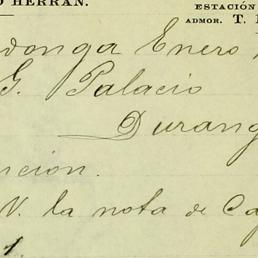 O HERRAN.
ESTACIÓN
ADMOR. T.
donga Enero
G. Palacio
Durang
ncion.
V. la nota de Ca